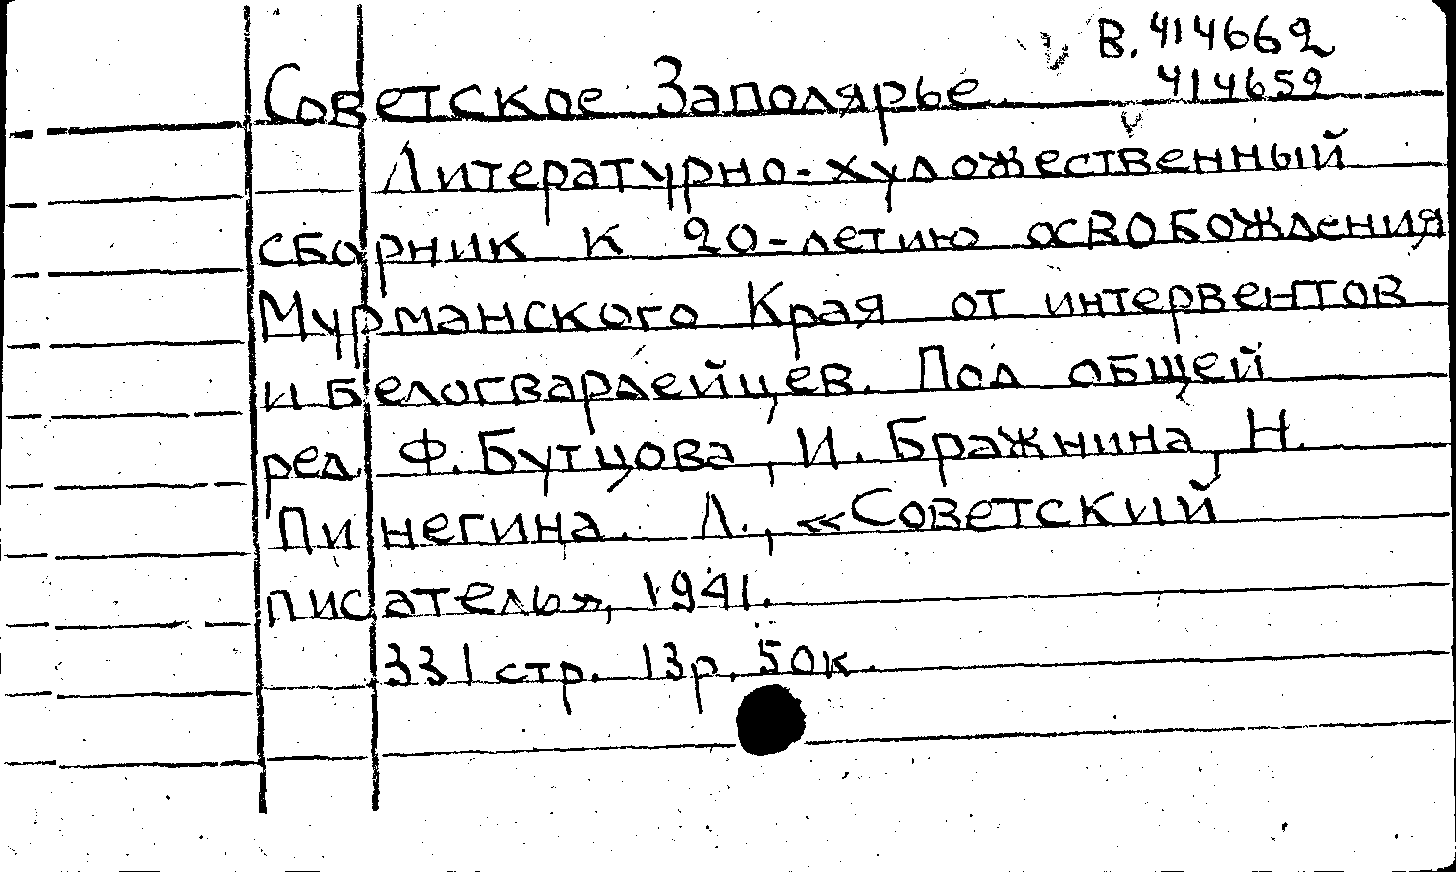 В. 414662
414659
Советское Заполярье.
Литературно-художественный
сборник к 20-летию освобождения
Мурманского Края от интервентов
и белогвардейцев. Под общей
ред. Ф. Бутцова, И. Бражнина, Н.
Пинегина. Л., «Советский
писатель», 1941.
331 стр. 13р. 50к.